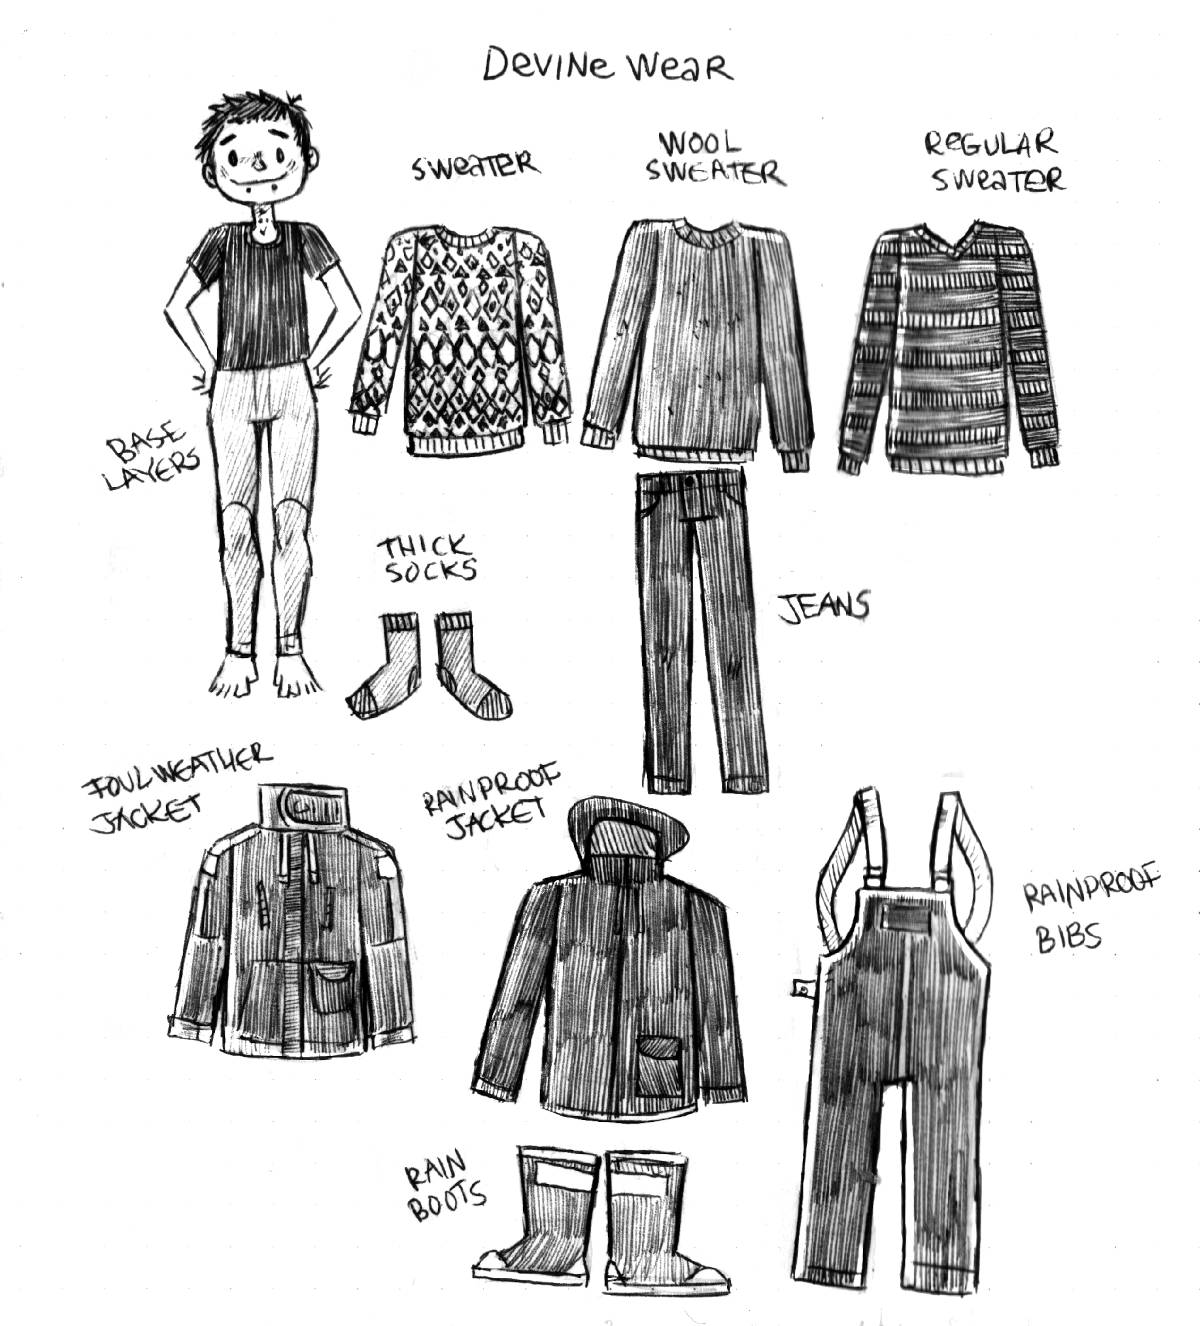 DEVINE WEAR
SWEATER
WOOL
SWEATER
REGULAR
SWEATER
BASE
LAYERS
THICK
SOCKS
JEANS
FOULWEATHER
JACKET
RAINPROOF
JACKET
RAINPROOF
BIBS
RAIN
BOOTS